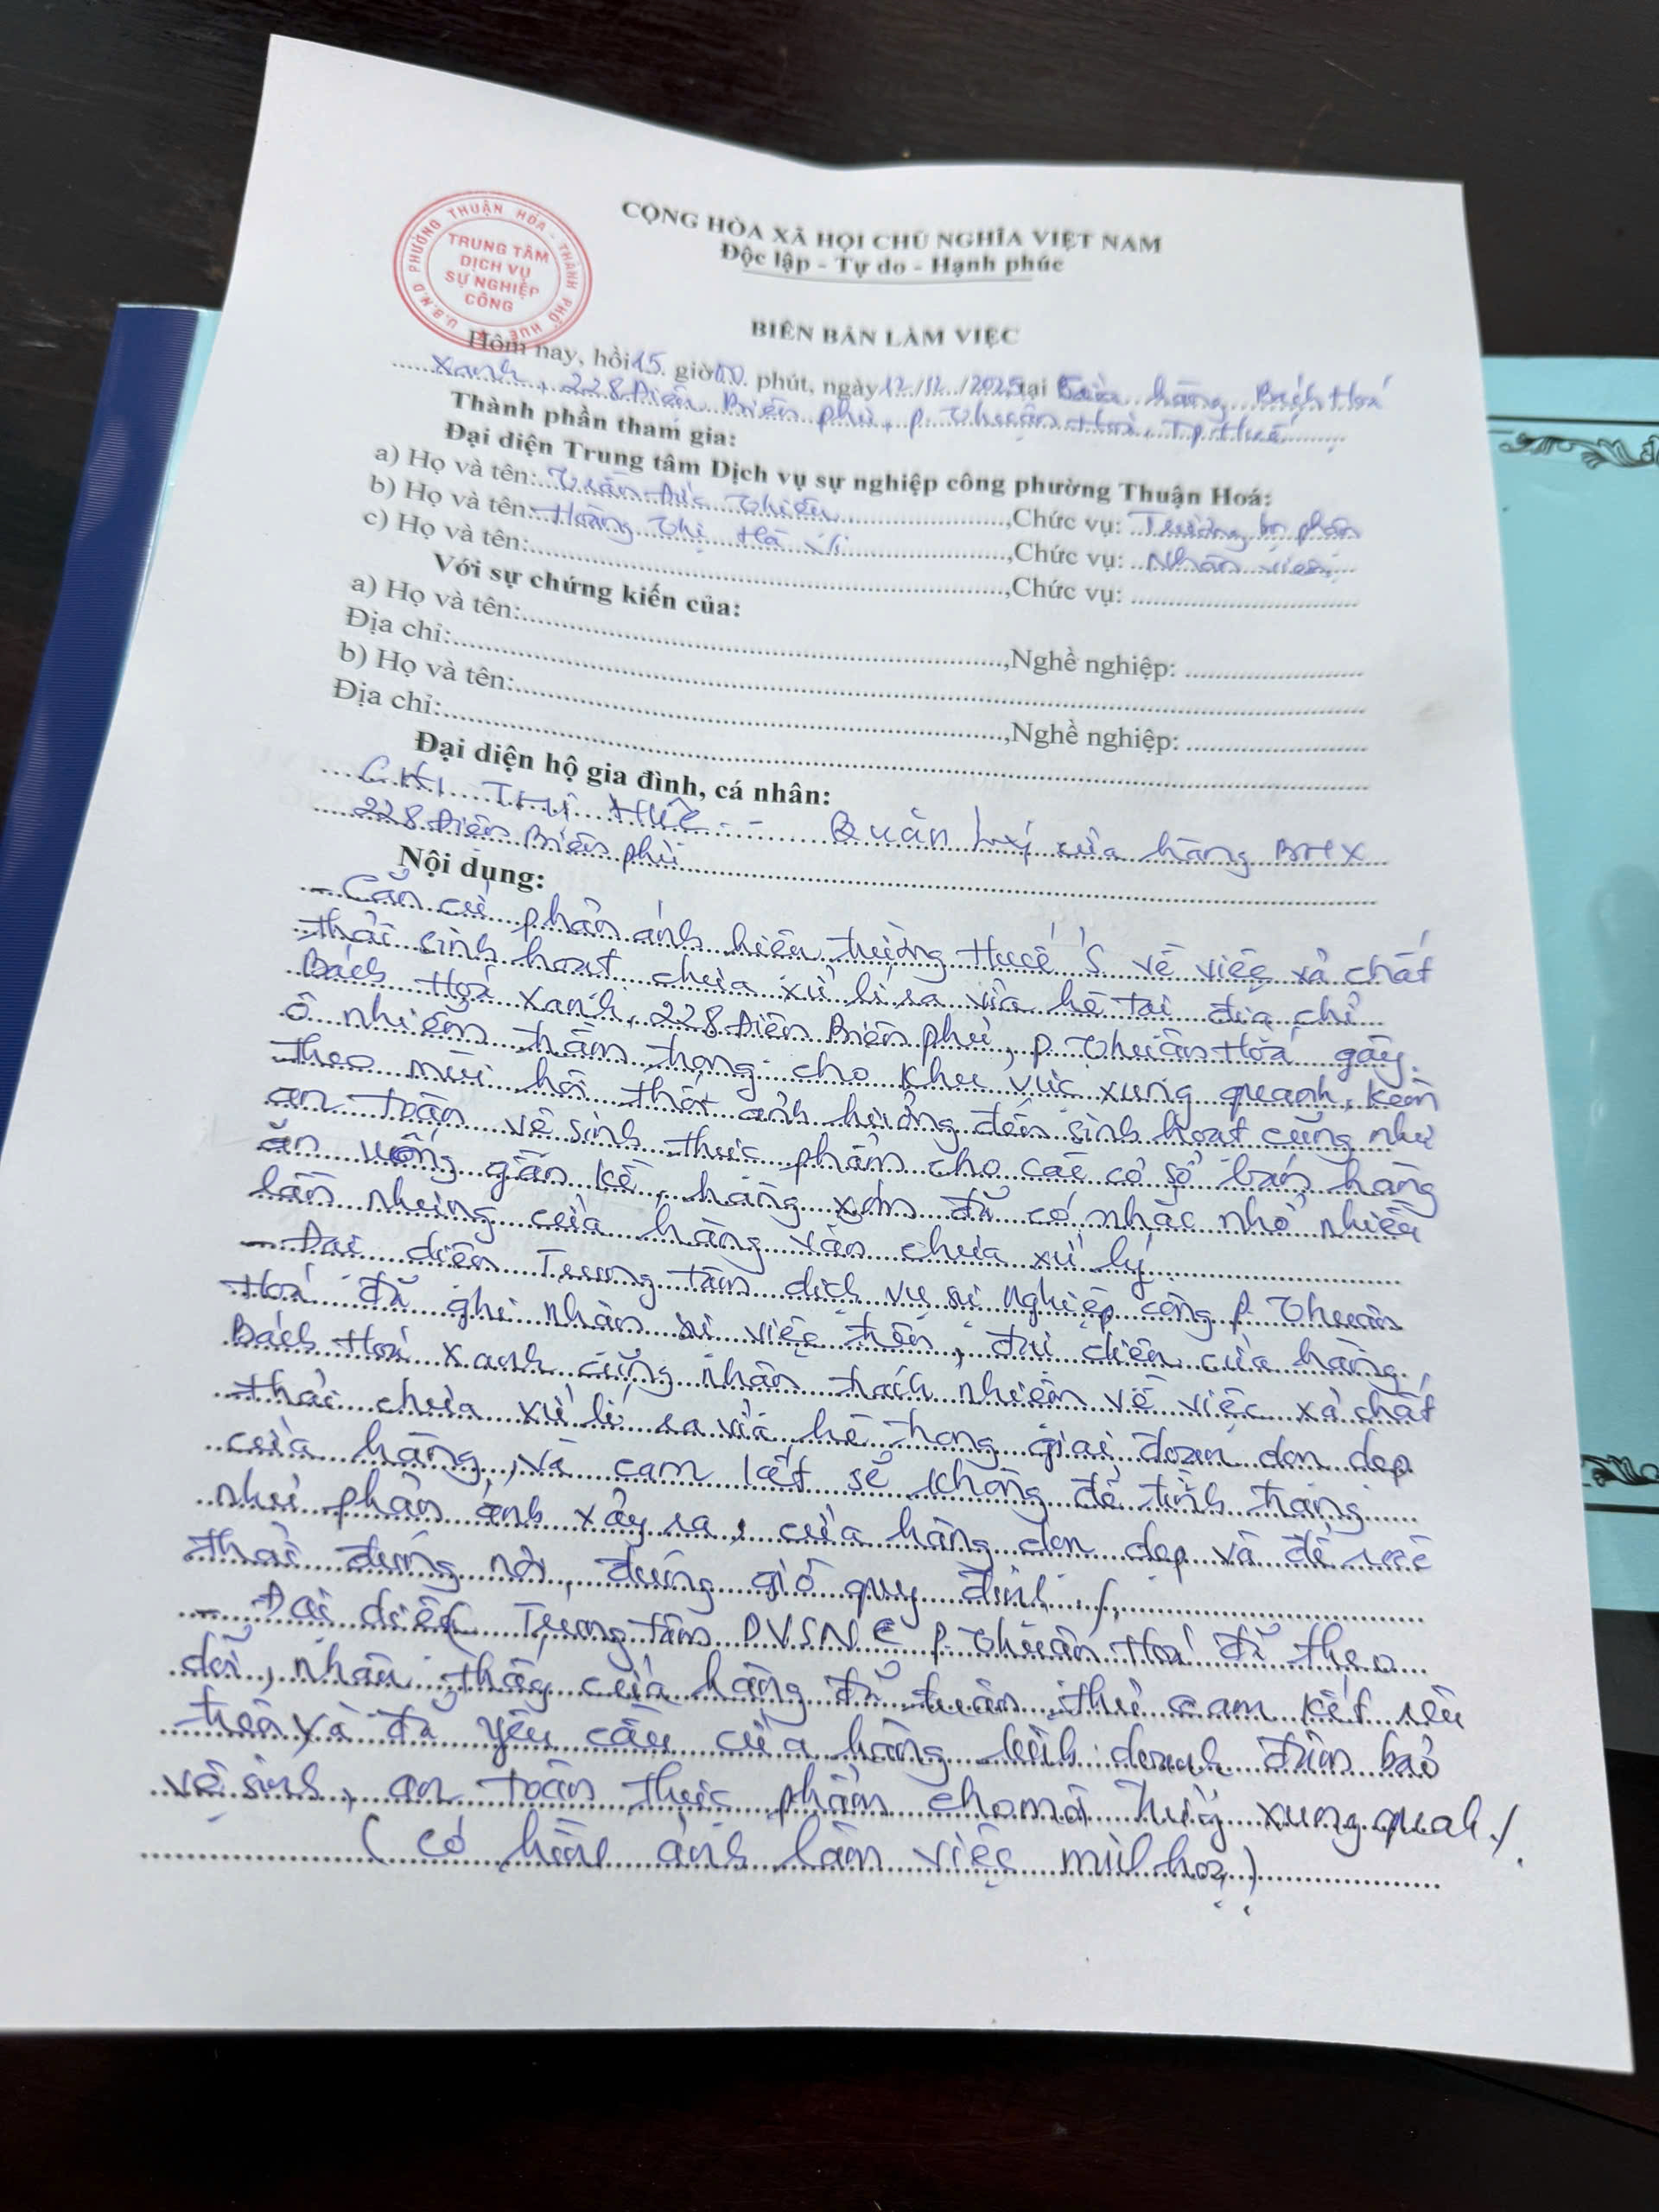 U.B.N.D PHƯỜNG THUẬN HÓA - THÀNH PHỐ HUẾ
TRUNG TÂM
DỊCH VỤ
SỰ NGHIỆP
CÔNG
CỘNG HÒA XÃ HỘI CHỦ NGHĨA VIỆT NAM
Độc lập - Tự do - Hạnh phúc
BIÊN BẢN LÀM VIỆC
Hôm nay, hồi 15 giờ 00 phút, ngày 12/12/2025, tại Cửa hàng Bách Hoá
Xanh, 228 Điện Biên Phủ, P. Thuận Hoá, Tp Huế
Thành phần tham gia:
Đại diện Trung tâm Dịch vụ sự nghiệp công phường Thuận Hoá:
a) Họ và tên: Trần Đức Thiện, Chức vụ: Trưởng bộ phận
b) Họ và tên: Hoàng Thị Hà Vi, Chức vụ: Nhân viên
c) Họ và tên:, Chức vụ:
Với sự chứng kiến của:
a) Họ và tên:, Nghề nghiệp:
Địa chỉ:
b) Họ và tên:, Nghề nghiệp:
Địa chỉ:
Đại diện hộ gia đình, cá nhân:
THỊ HUẾ - Quản Lý cửa hàng BHX
228 Điện Biên Phủ
Nội dung:
- Căn cứ phản ánh hiện trường Huế S về việc xả chất
thải sinh hoạt chưa xử lí ra vỉa hè tại địa chỉ
Bách Hoá Xanh, 228 Điện Biên Phủ, P. Thuận Hoá gây
ô nhiễm trầm trọng cho khu vực xung quanh, kèm
theo mùi hôi thối ảnh hưởng đến sinh hoạt cũng như
an toàn vệ sinh thực phẩm cho các cơ sở bán hàng
ăn uống gần kề, hàng xóm đã có nhắc nhở nhiều
lần nhưng cửa hàng vẫn chưa xử lý
- Đại diện Trung tâm dịch vụ sự nghiệp công P. Thuận
Hoá đã ghi nhận sự việc trên, đại diện cửa hàng
Bách Hoá Xanh cũng nhận trách nhiệm về việc xả chất
thải chưa xử lí ra vỉa hè trong giai đoạn dọn dẹp
cửa hàng, và cam kết sẽ không để tình trạng
như phản ánh xảy ra, cửa hàng dọn dẹp và để rác
thải đúng nơi, đúng giờ quy định./.
- Đại diện Trung tâm DVSNC P. Thuận Hoá đã theo
dõi, nhận thấy cửa hàng đã tuân thủ cam kết nêu
trên và đã yêu cầu cửa hàng kinh doanh đảm bảo
vệ sinh, an toàn thực phẩm cho môi trường xung quanh./.
(Có hình ảnh làm việc minh hoạ)